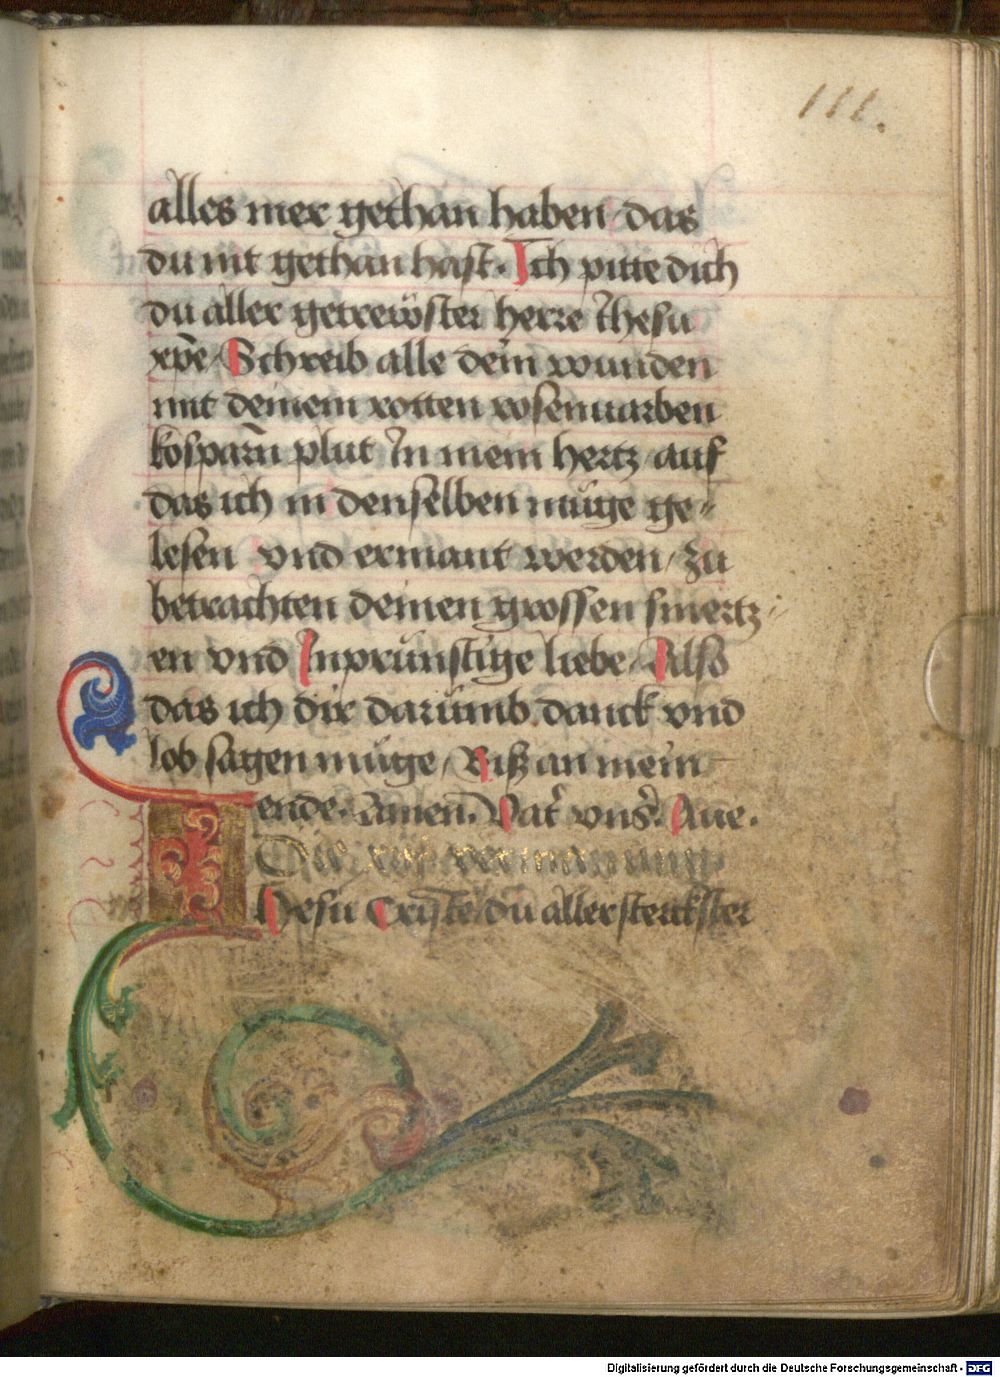 111.
alles mer gethan haben / das
du nit gethan hast. Ich pitte dich
du aller getrewster herre Ihesu
xpe Schreib alle dein wunden
mit deinem rotten rosenuarben
kosparn plut In mein hertz / auf
das ich in denselben müge ge-
lesen vnd ermant werden / zu
betrachten deinen grossen smertz-
en vnd Inprünstige liebe / Also
das ich dir darumb danck vnd
lob sagen müge / Biß an mein
ende. Amen. Vatr vnsr. Aue.
Die vermanung
Ihesu Criste du aller sterckster
Digitalisierung gefördert durch die Deutsche Forschungsgemeinschaft - DFG